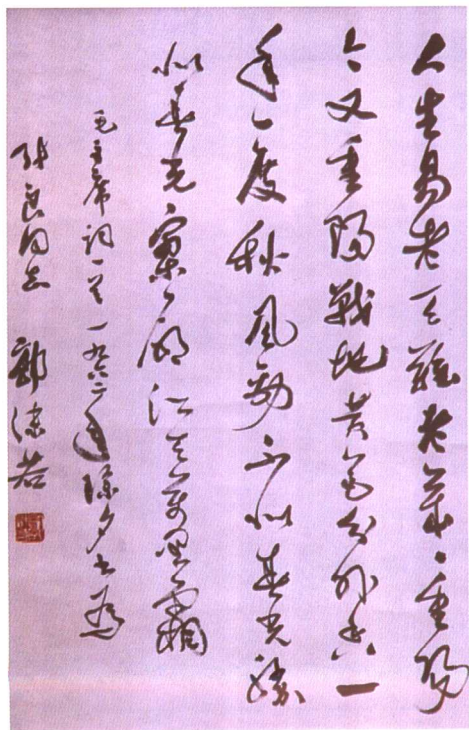 人生易老天難老歲々重陽
今又重陽戰地黄花分外香一
年一度秋風勁不似春光勝
似春光寥廓江天萬里霜
毛主席詞一首一九六二年除夕書為
張良同志 郭沫若